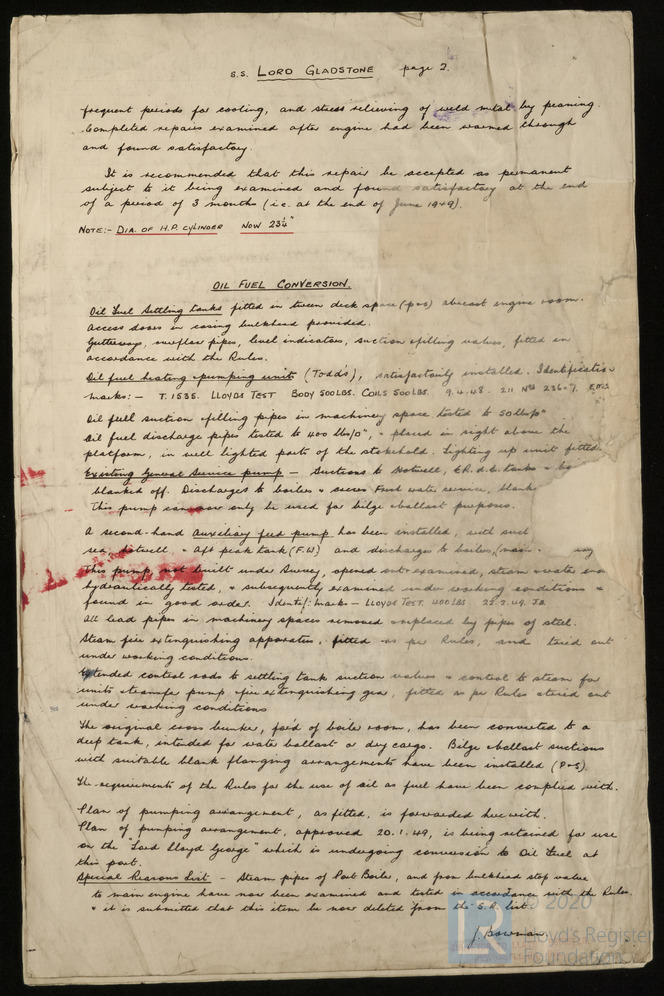 S.S. LORD GLADSTONE page 2.
frequent periods for cooling, and stress relieving of weld metal by peaning.
Completed repairs examined after engine had been warmed through
and found satisfactory.
It is recommended that this repair be accepted as permanent
subject to it being examined and found satisfactory at the end
of a period of 3 months (i.e. at the end of June 1949).
NOTE:- DIA. OF H.P. CYLINDER NOW 23¼"
OIL FUEL CONVERSION.
Oil Fuel Settling tanks fitted in tween deck space (p+s) abreast engine room.
Access doors in casing bulkhead provided.
Gutterways, overflow pipes, level indicators, suction + filling valves, fitted in
accordance with the Rules.
Oil fuel heating + pumping units (Todd's), satisfactorily installed. Identification
marks:- T.1535. LLOYDS TEST BODY 500LBS. COILS 500LBS. 9.4.48. 211 Nos 236-7.
Oil fuel suction + filling pipes in machinery space tested to 50 lbs/□"
Oil fuel discharge pipes tested to 400 lbs/□", + placed in sight above the
platform, in well lighted parts of the stokehold. Lighting up unit fitted.
Existing General Service pump - Suctions to Hotwell, tanks +
blanked off. Discharges to boilers + Fresh water service, blank
This pump can now only be used for bilge + ballast purposes.
A second-hand Auxiliary feed pump has been installed, with suct
sea, hotwell + aft peak tank (F.W) and discharges to boilers,
This pump, not built under Survey, opened out + examined, steam + water
hydraulically tested, + subsequently examined under working conditions +
found in good order. Identif: marks - LLOYDS TEST. 400LBS 22.2.49. J.B.
All lead pipes in machinery spaces removed + replaced by pipes of steel.
Steam fire extinguishing apparatus, fitted as per Rules, and tried out
under working conditions.
Extended control rods to settling tank suction valves + control to steam for
units + transfer pump + fire extinguishing gear, fitted as per Rules + tried out
under working conditions
The original cross bunker, for'd of boiler room, has been converted to a
deep tank, intended for water ballast or dry cargo. Bilge + ballast suctions
with suitable blank flanging arrangements have been installed (P+S).
The requirements of the Rules for the use of oil as fuel have been complied with.
Plan of pumping arrangement, as fitted, is forwarded herewith.
Plan of pumping arrangement, approved 20.1.49, is being retained for use
on the "Lord Lloyd George" which is undergoing conversion to Oil Fuel at
this port.
Special Reasons List - Steam pipes of Port Boiler, and from bulkhead stop valve
to main engine have now been examined and tested in accordance with the Rules
+ it is submitted that this item be now deleted from the S.R. list.
J. Bowman
© 2020
LR
Lloyd's Register
Foundation